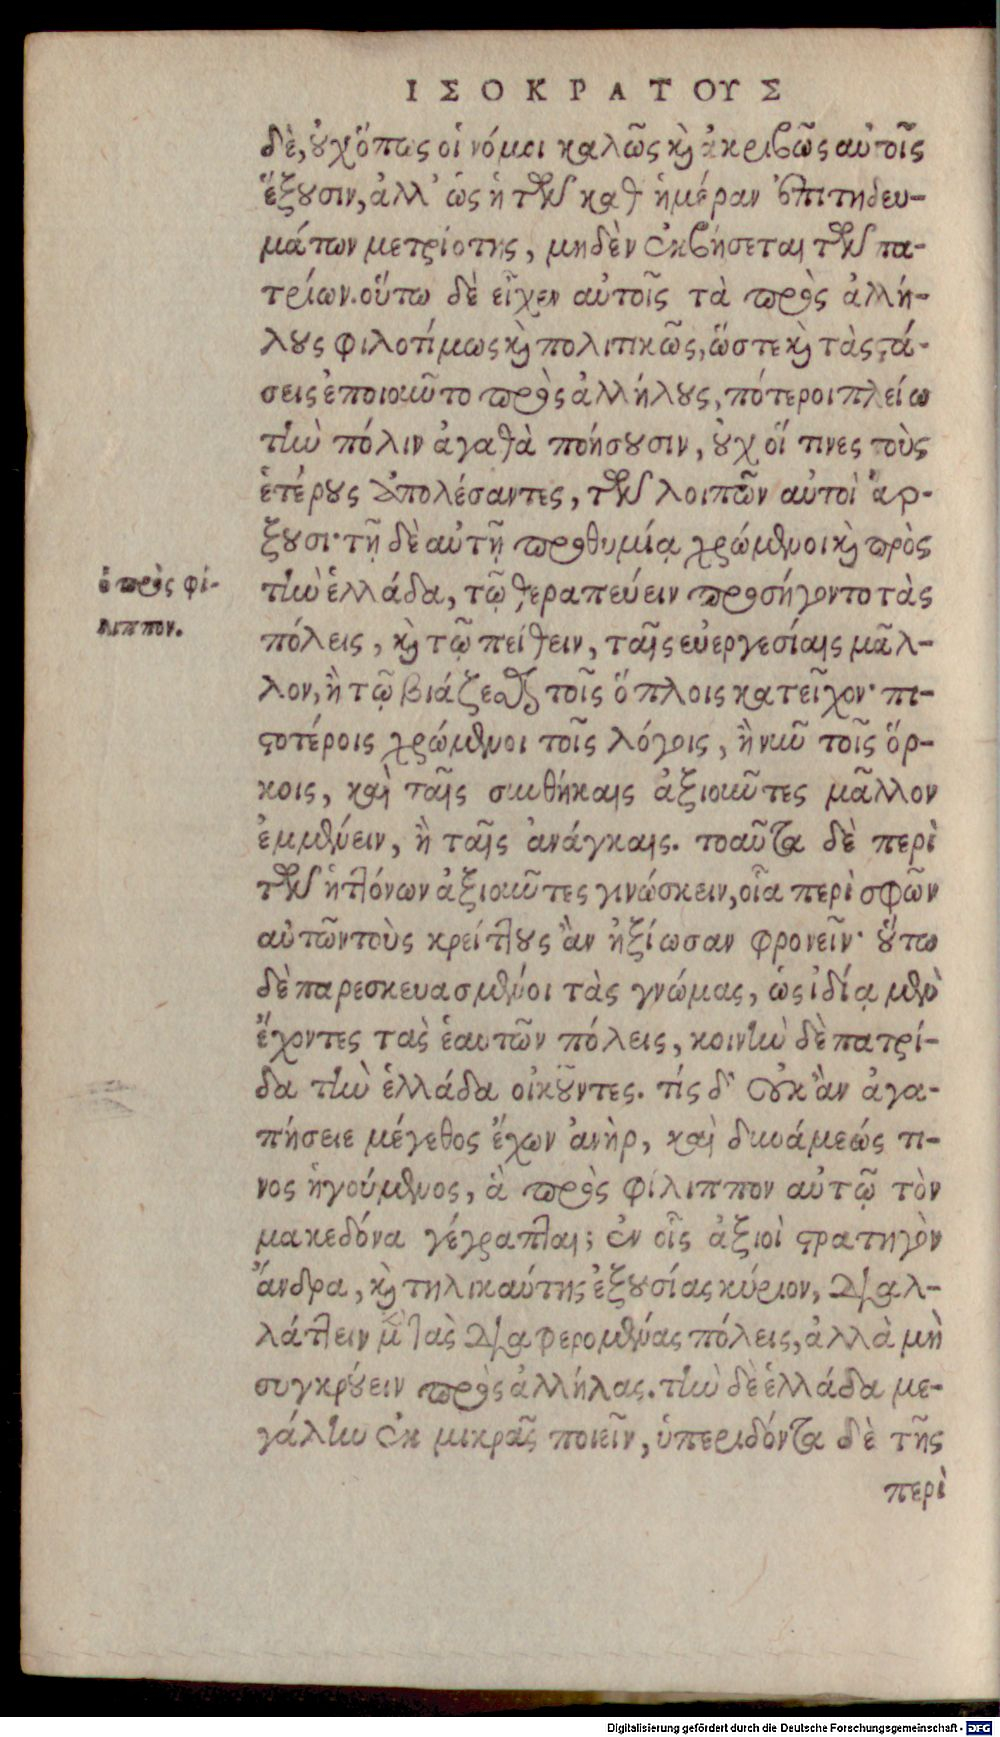 ΙΣΟΚΡΑΤΟΥΣ
δὲ, οὐχ ὅπως οἱ νόμοι καλῶς καὶ ἀκριβῶς αὐτοῖς
ἕξουσιν, ἀλλ' ὡς ἡ τῶν καθ ἡμέραν ἐπιτηδευ-
μάτων μετριότης, μηδὲν ἐκβήσεται τῶν πα-
τρίων. οὕτω δὲ εἶχεν αὐτοῖς τὰ πρὸς ἀλλή-
λους φιλοτίμως καὶ πολιτικῶς, ὥστε καὶ τὰς στά-
σεις ἐποιοῦντο πρὸς ἀλλήλους, πότεροι πλείω
τὴν πόλιν ἀγαθὰ ποήσουσιν, οὐχ οἵ τινες τοὺς
ἑτέρους ἀπολέσαντες, τῶν λοιπῶν αὐτοὶ ἄρ-
ξουσι· τῇ δὲ αὐτῇ προθυμίᾳ χρώμενοι καὶ πρὸς
τὴν ἑλλάδα, τῷ θεραπεύειν προσήγοντο τὰς
πόλεις, καὶ τῷ πείθειν, ταῖς εὐεργεσίαις μᾶλ-
λον, ἢ τῷ βιάζεσθαι τοῖς ὅπλοις κατεῖχον· πι-
στοτέροις χρώμενοι τοῖς λόγοις, ἢ νῦν τοῖς ὅρ-
κοις, καὶ ταῖς συνθήκαις ἀξιοῦντες μᾶλλον
ἐμμένειν, ἢ ταῖς ἀνάγκαις. τοαῦτα δὲ περὶ
τῶν ἡττόνων ἀξιοῦντες γινώσκειν, οἷα περὶ σφῶν
αὐτῶν τοὺς κρείττους ἂν ἠξίωσαν φρονεῖν· οὕτω
δὲ παρεσκευασμένοι τὰς γνώμας, ὡς ἰδίᾳ μὲν
ἔχοντες τὰς ἑαυτῶν πόλεις, κοινὴν δὲ πατρί-
δα τὴν ἑλλάδα οἰκοῦντες. τίς δ' οὐκ ἂν ἀγα-
πήσειε μέγεθος ἔχων ἀνὴρ, καὶ δυνάμεώς τι-
νος ἡγούμενος, ἃ πρὸς φίλιππον αὐτῷ τὸν
μακεδόνα γέγραπται; ἐν οἷς ἀξιοῖ στρατηγὸν
ἄνδρα, καὶ τηλικαύτης ἐξουσίας κύριον, διαλ-
λάττειν μὲν τὰς διαφερομένας πόλεις, ἀλλὰ μὴ
συγκρούειν πρὸς ἀλλήλας. τὴν δὲ ἑλλάδα με-
γάλην ἐκ μικρᾶς ποιεῖν, ὑπεριδόντα δὲ τῆς
περὶ
ὁ πρὸς φί-
λιππον.
Digitalisierung gefördert durch die Deutsche Forschungsgemeinschaft - DFG